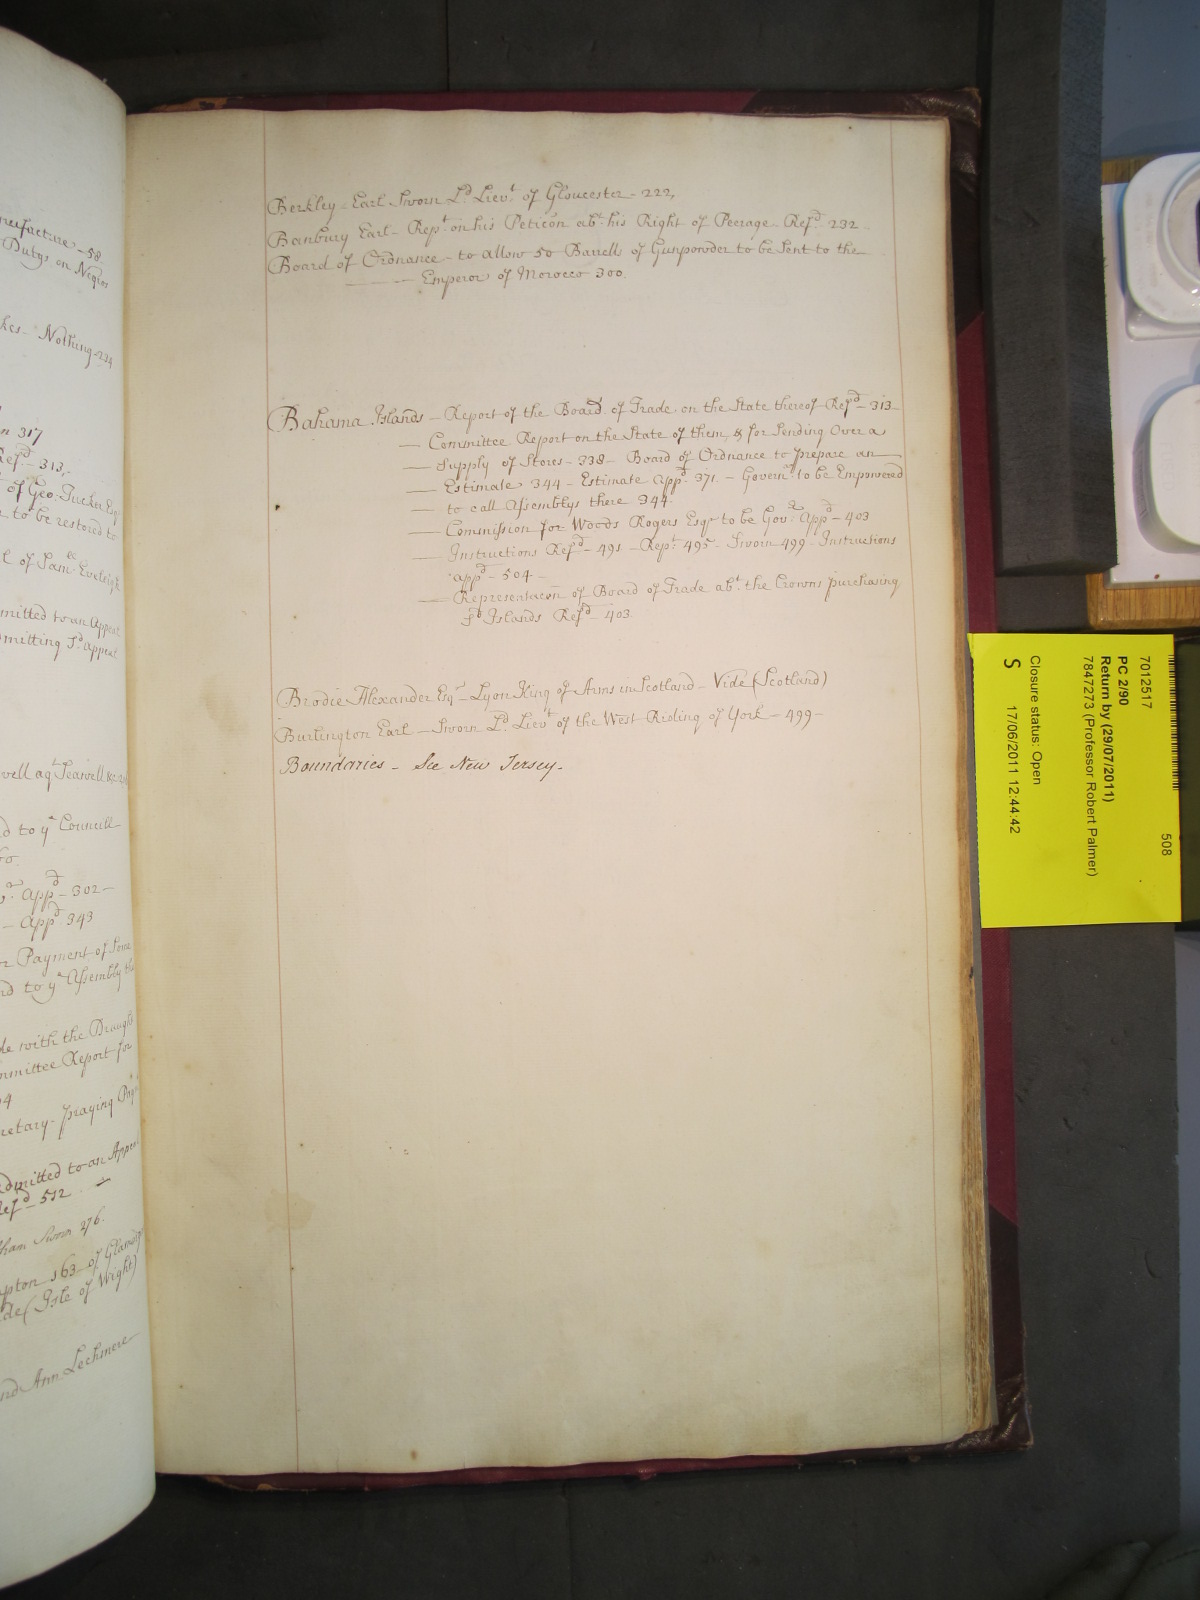 nufacture - 58
Dutys on Negros
kes - Nothing - 224
n 317
Ref.d - 313,-
of Geo: Tucker Esq.r
to be restored to
of Sam: Eveleigh
mitted to an Appeal
mitting s.d appeal
well ag.t Seawell
d to y.e Councill
app.d - 302 -
- app.d 343
Payment of Some
nd to y.e Assembly
de with the Draught
mmittee Report for
retary - praying
dmitted to an Appeal
Ref.d 512
ham Sworn 276.
pton 163 of
de (Isle of Wight)
nd Ann Lechmere
Berkley - Earl Sworn L.d Liev.t of Gloucester - 222,
Banbury Earl - Rep.t on his Peticon ab.t his Right of Peerage. Ref.d 232 -
Board of Ordnance - to allow 50 Barrells of Gunpowder to be Sent to the
— — — Emperor of Morocco 300.
Bahama Islands - Report of the Board of Trade on the State thereof - Ref.d - 313 -
— Committee Report on the State of them, & for Sending Over a
— Supply of Stores - 338 - Board of Ordnance to prepare an
— Estimate 344 - Estimate app.d 371. - Govern.r to be Empowered
— to call Assemblys there 344.
— Commission for Woods Rogers Esq.r to be Gov.r App.d - 403
— Instructions Ref.d - 491 - Rep.t 495 - Sworn 499 - Instructions
app.d - 504 -
— Representacon of Board of Trade ab.t the Crowns purchasing
s.d Islands Ref.d - 403
Brodie Alexander Esq.r - Lyon King of Arms in Scotland - Vide (Scotland)
Burlington Earl - Sworn L.d Liev.t of the West Riding of York - 499 -
Boundaries - See New Jersey.
508
7012517
PC 2/90
Return by (29/07/2011)
7847273 (Professor Robert Palmer)
Closure status: Open
S 17/06/2011 12:44:42